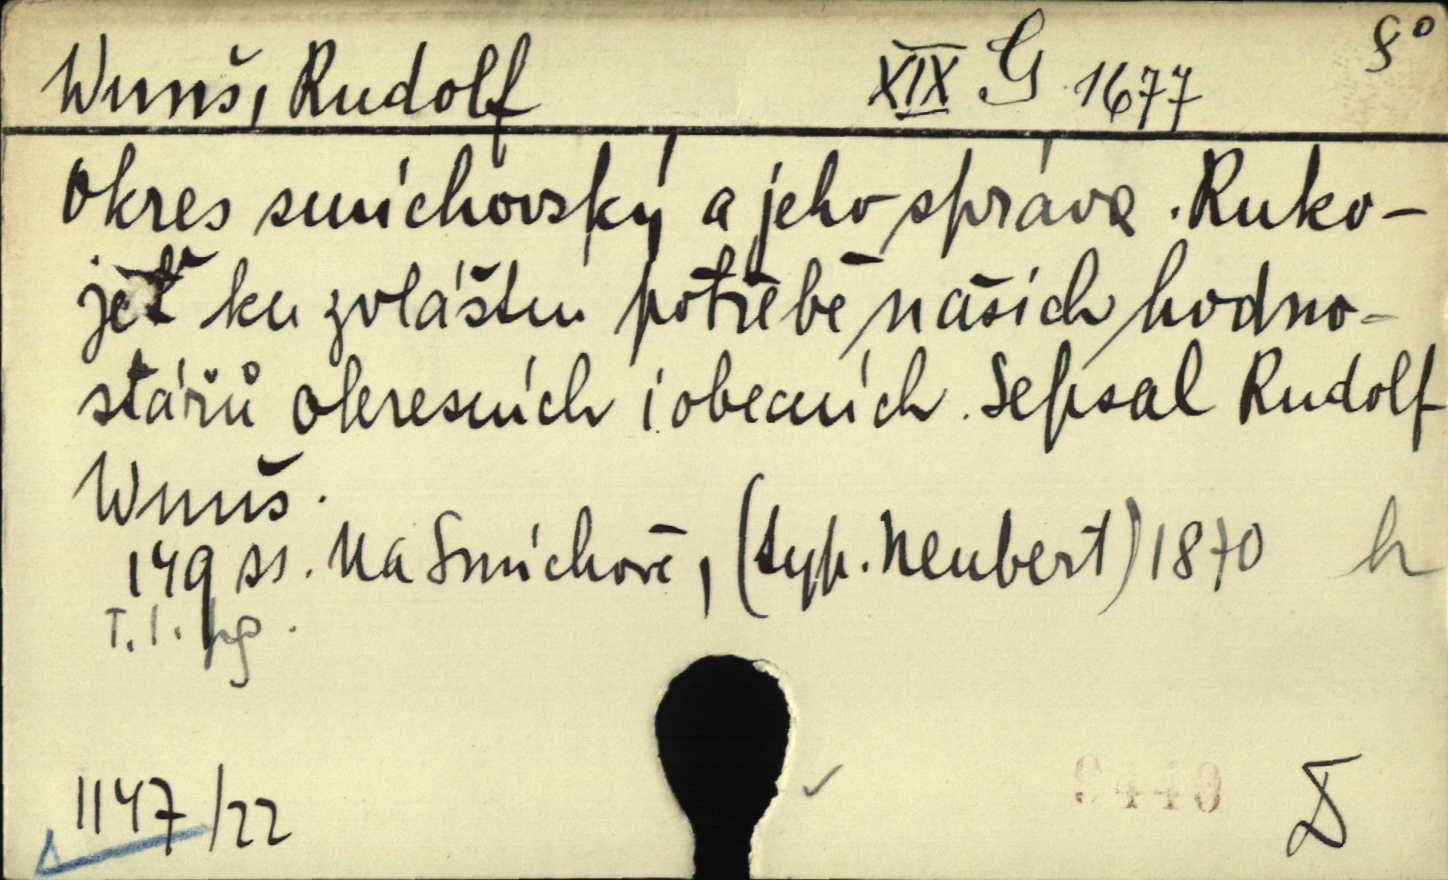 Wunš, Rudolf XIX G 1677 8°
Okres smíchovský a jeho správa. Ruko-
jeť ku zvláštní potřebě našich hodno-
stářů okresních i obecních. Sepsal Rudolf
Wunš.
149 ss. Na Smíchově, (typ. Neubert) 1870 h
T. I. pg.
1147/22